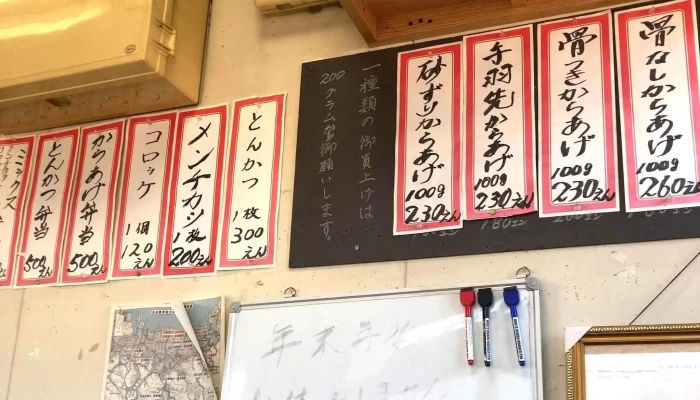 骨なしからあげ
100g
260えん
骨つきからあげ
100g
230えん
手羽先からあげ
100g
230えん
砂ずりからあげ
100g
230えん
一種類の御買上げは
200グラム以上御願いします。
とんかつ
1枚
300えん
メンチカツ
1枚
200えん
コロッケ
1個
120えん
からあげ弁当
500えん
とんかつ弁当
500えん
ミックス
年末年始